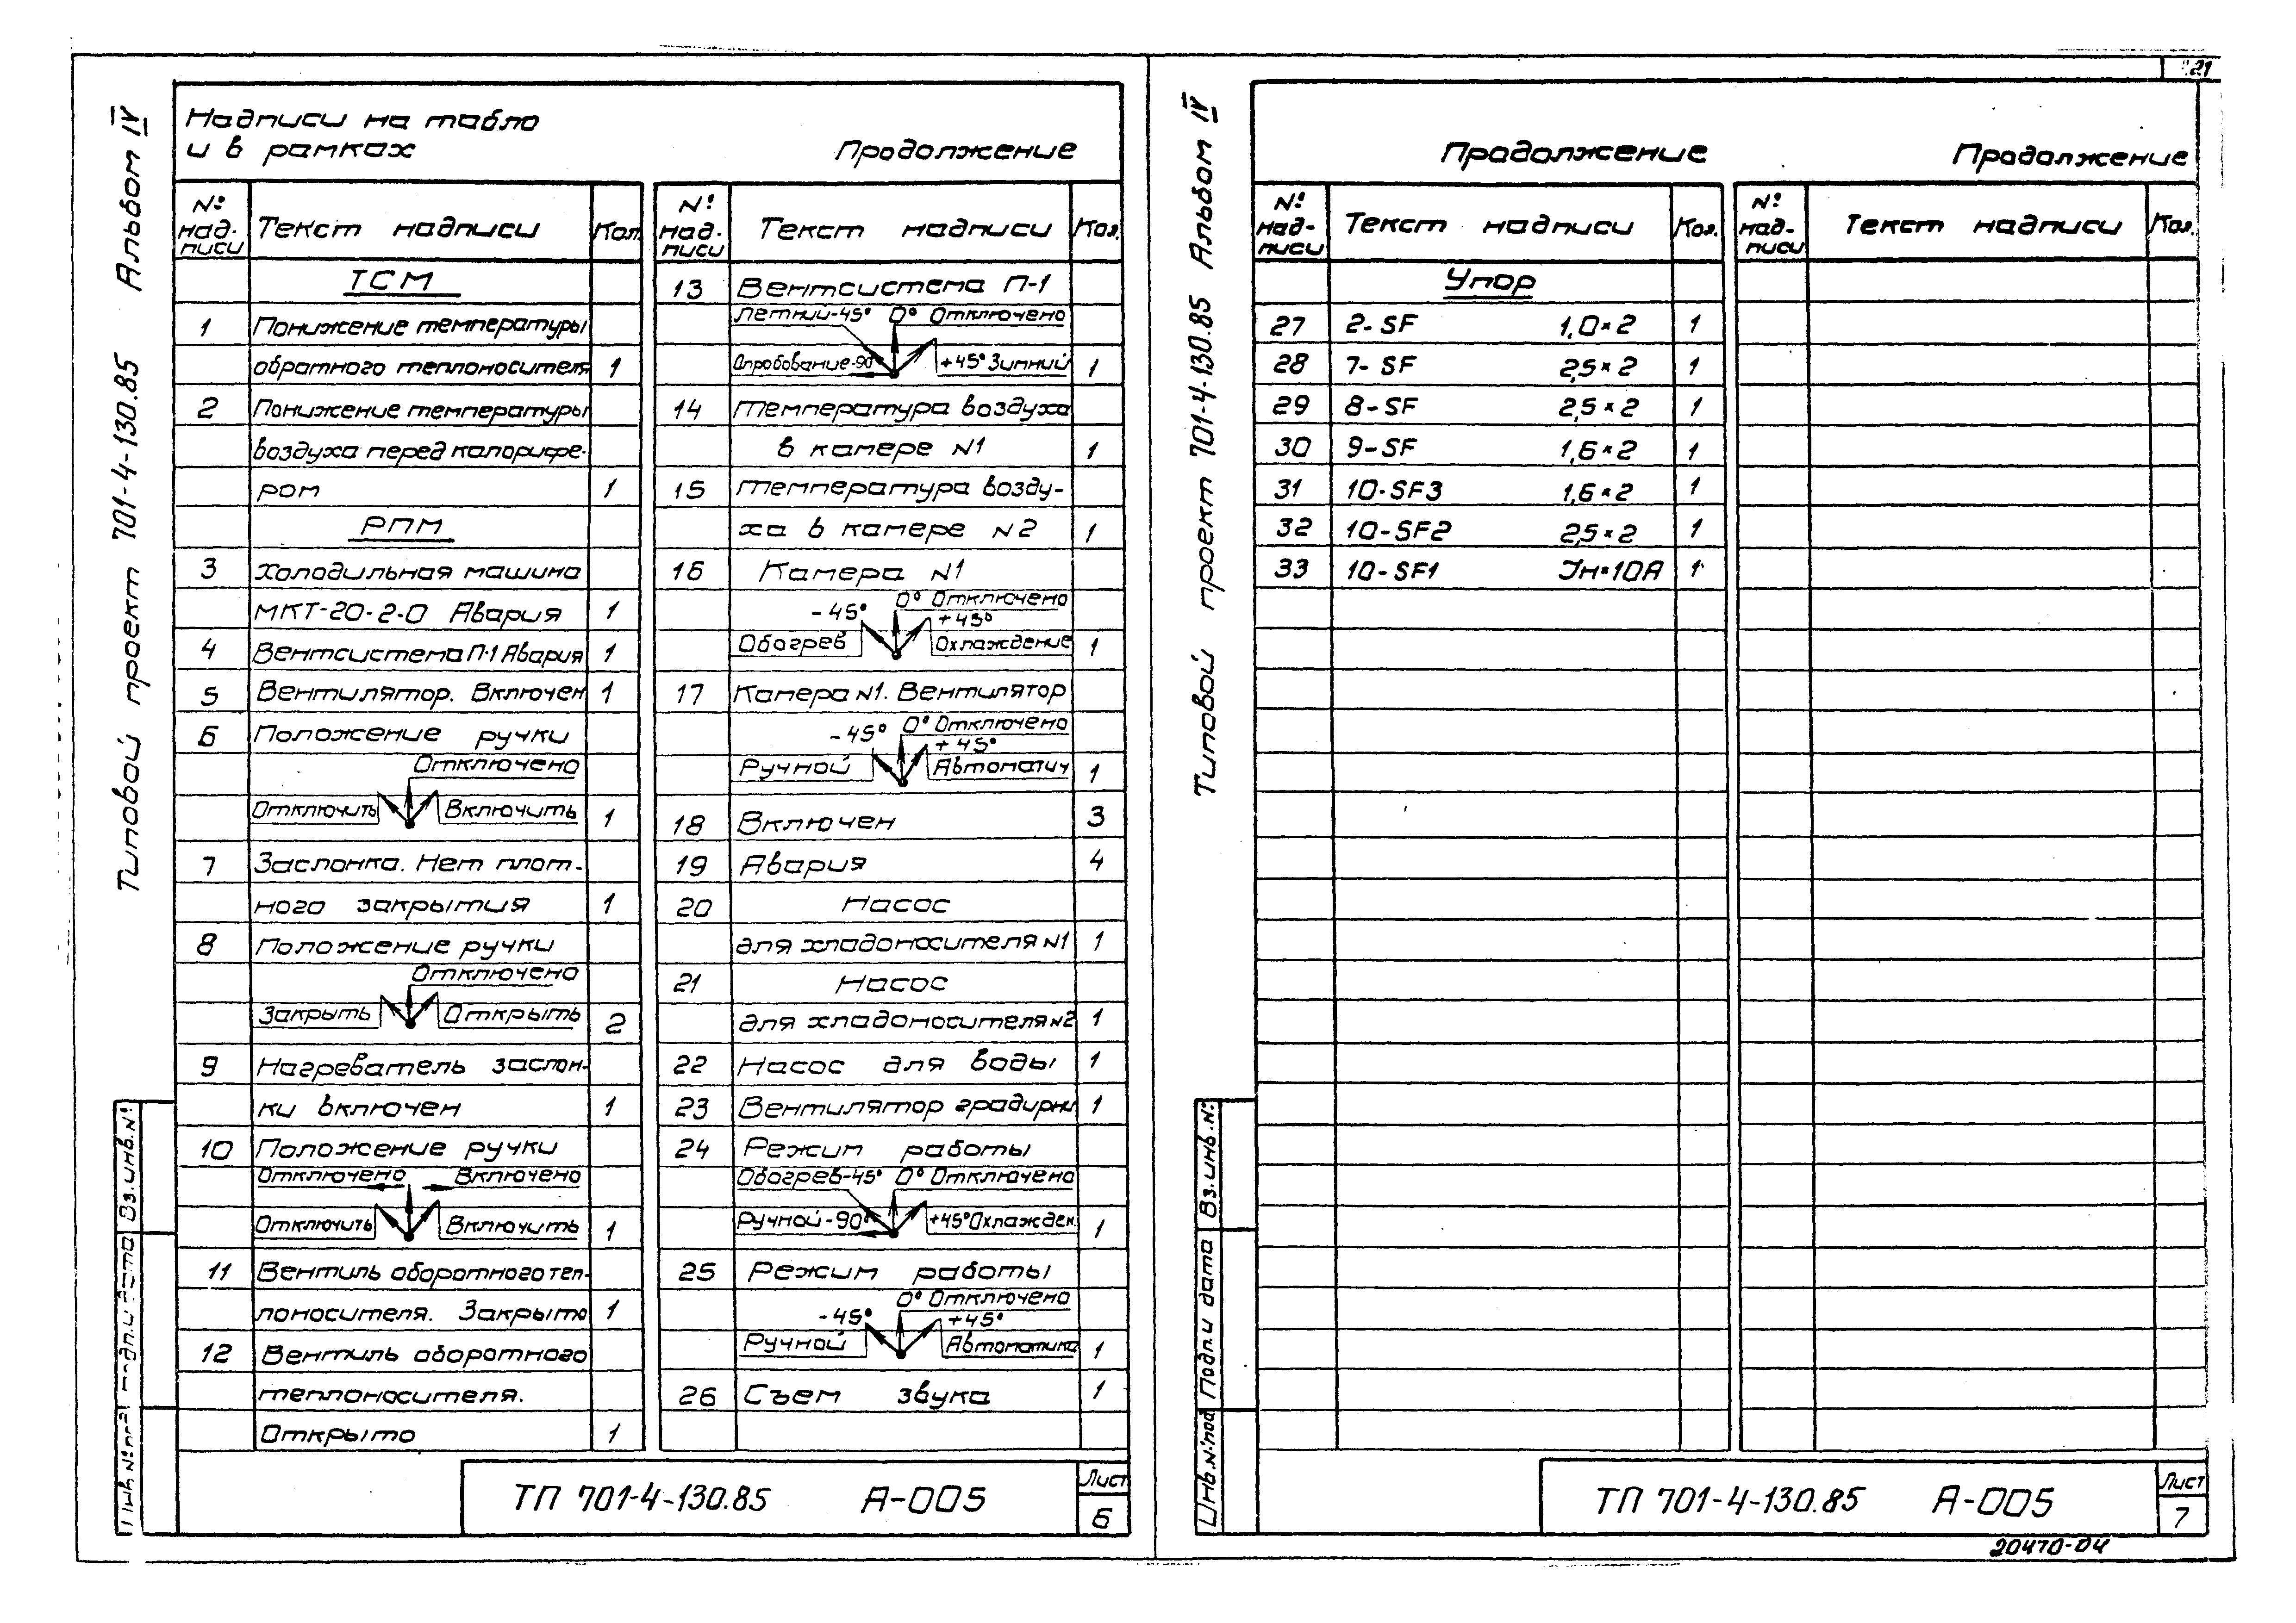 21
Типовой проект 701-4-130.85 Альбом IV
Надписи на табло
и в рамках
Продолжение
№ надписи Текст надписи Кол.
ТСМ
1 Понижение температуры
обратного теплоносителя 1
2 Понижение температуры
воздуха перед калорифе-
ром 1
РПМ
3 Холодильная машина
МКТ-20-2-0 Авария 1
4 Вентсистема П-1 Авария 1
5 Вентилятор. Включен 1
6 Положение ручки
Отключено
Отключить Включить 1
7 Заслонка. Нет плот-
ного закрытия 1
8 Положение ручки
Отключено
Закрыть Открыть 2
9 Нагреватель заслон-
ки включен 1
10 Положение ручки
Отключено Включено
Отключить Включить 1
11 Вентиль оборотного теп-
лоносителя. Закрыто 1
12 Вентиль оборотного
теплоносителя.
Открыто 1
№ над-писи Текст надписи Кол.
13 Вентсистема П-1
Летний-45° 0° Отключено
Опробование-90° +45° Зимний 1
14 Температура воздуха
в камере №1 1
15 Температура возду-
ха в камере №2 1
16 Камера №1
0° Отключено
-45° +45°
Обогрев Охлаждение 1
17 Камера №1. Вентилятор
0° Отключено
-45° +45°
Ручной Автоматич 1
18 Включен 3
19 Авария 4
20 Насос
для хладоносителя №1 1
21 Насос
для хладоносителя №2 1
22 Насос для воды 1
23 Вентилятор градирни 1
24 Режим работы
Обогрев-45° 0° Отключено
Ручной-90° +45° Охлажден. 1
25 Режим работы
0° Отключено
-45° +45°
Ручной Автоматика 1
26 Съем звука 1
Вз. инв. №
ТП 701-4-130.85 А-005
Лист
6
Типовой проект 701-4-130.85 Альбом IV
Продолжение
Продолжение
№ над-писи Текст надписи Кол.
Упор
27 2-SF 1,0×2 1
28 7-SF 2,5×2 1
29 8-SF 2,5×2 1
30 9-SF 1,6×2 1
31 10-SF3 1,6×2 1
32 10-SF2 2,5×2 1
33 10-SF1 Jн=10А 1
№ над-писи Текст надписи Кол.
Вз. инв. №
Подп. и дата
Инв. № под
ТП 701-4-130.85 А-005
Лист
7
20470-04